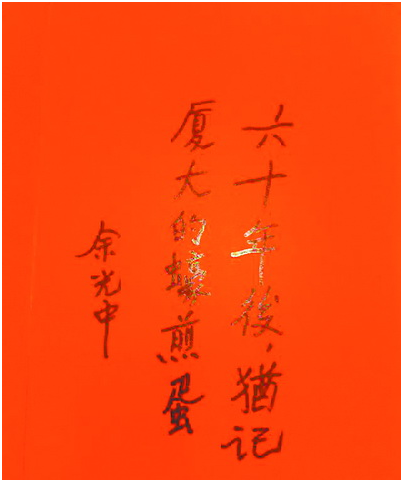 六十年後，猶記
厦大的蠔煎蛋
余光中